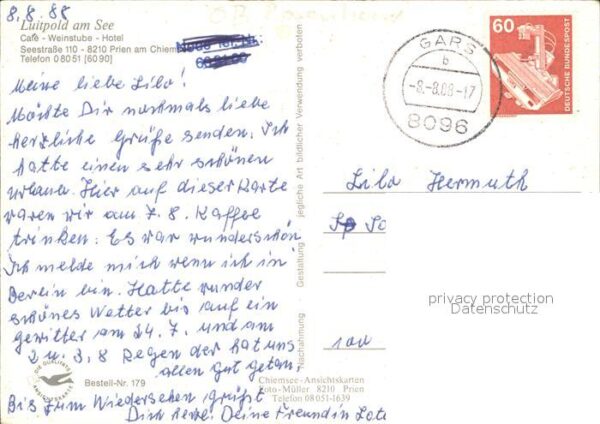 8,8.88
Luitpold am See
Café - Weinstube - Hotel
Seestraße 110 - 8210 Prien am Chiem
Telefon 08051 [6090]
Meine liebe Lilo!
Möchte Dir nochmals liebe
herzliche Grüße senden. Ich
hatte einen sehr schönen
Urlaub. Hier auf dieser Karte
waren wir am 7. 8. Kaffee
trinken. Es war wunderschön
Ich melde mich wenn ich in
Berlin bin. Hatte wunder
schönes Wetter bis auf ein
gewitter am 24. 7. und am
2 u. 3, 8 Regen der hat uns
allen gut getan,
DIE QUALITÄTS
ANSICHTSKARTE
Bestell-Nr. 179
Chiemsee-Ansichtskarten
Foto-Müller 8210 Prien
Telefon 08051-1639
Bis zum Wiedersehen grüßt
Dich herzl. Deine Freundin
Nachahmung - Gestaltung - jegliche Art bildlicher Verwendung verboten
GARS
b
-8.-8.88-17
8096
60
DEUTSCHE BUNDESPOST
Lilo Hermuth
privacy protection
Datenschutz
100